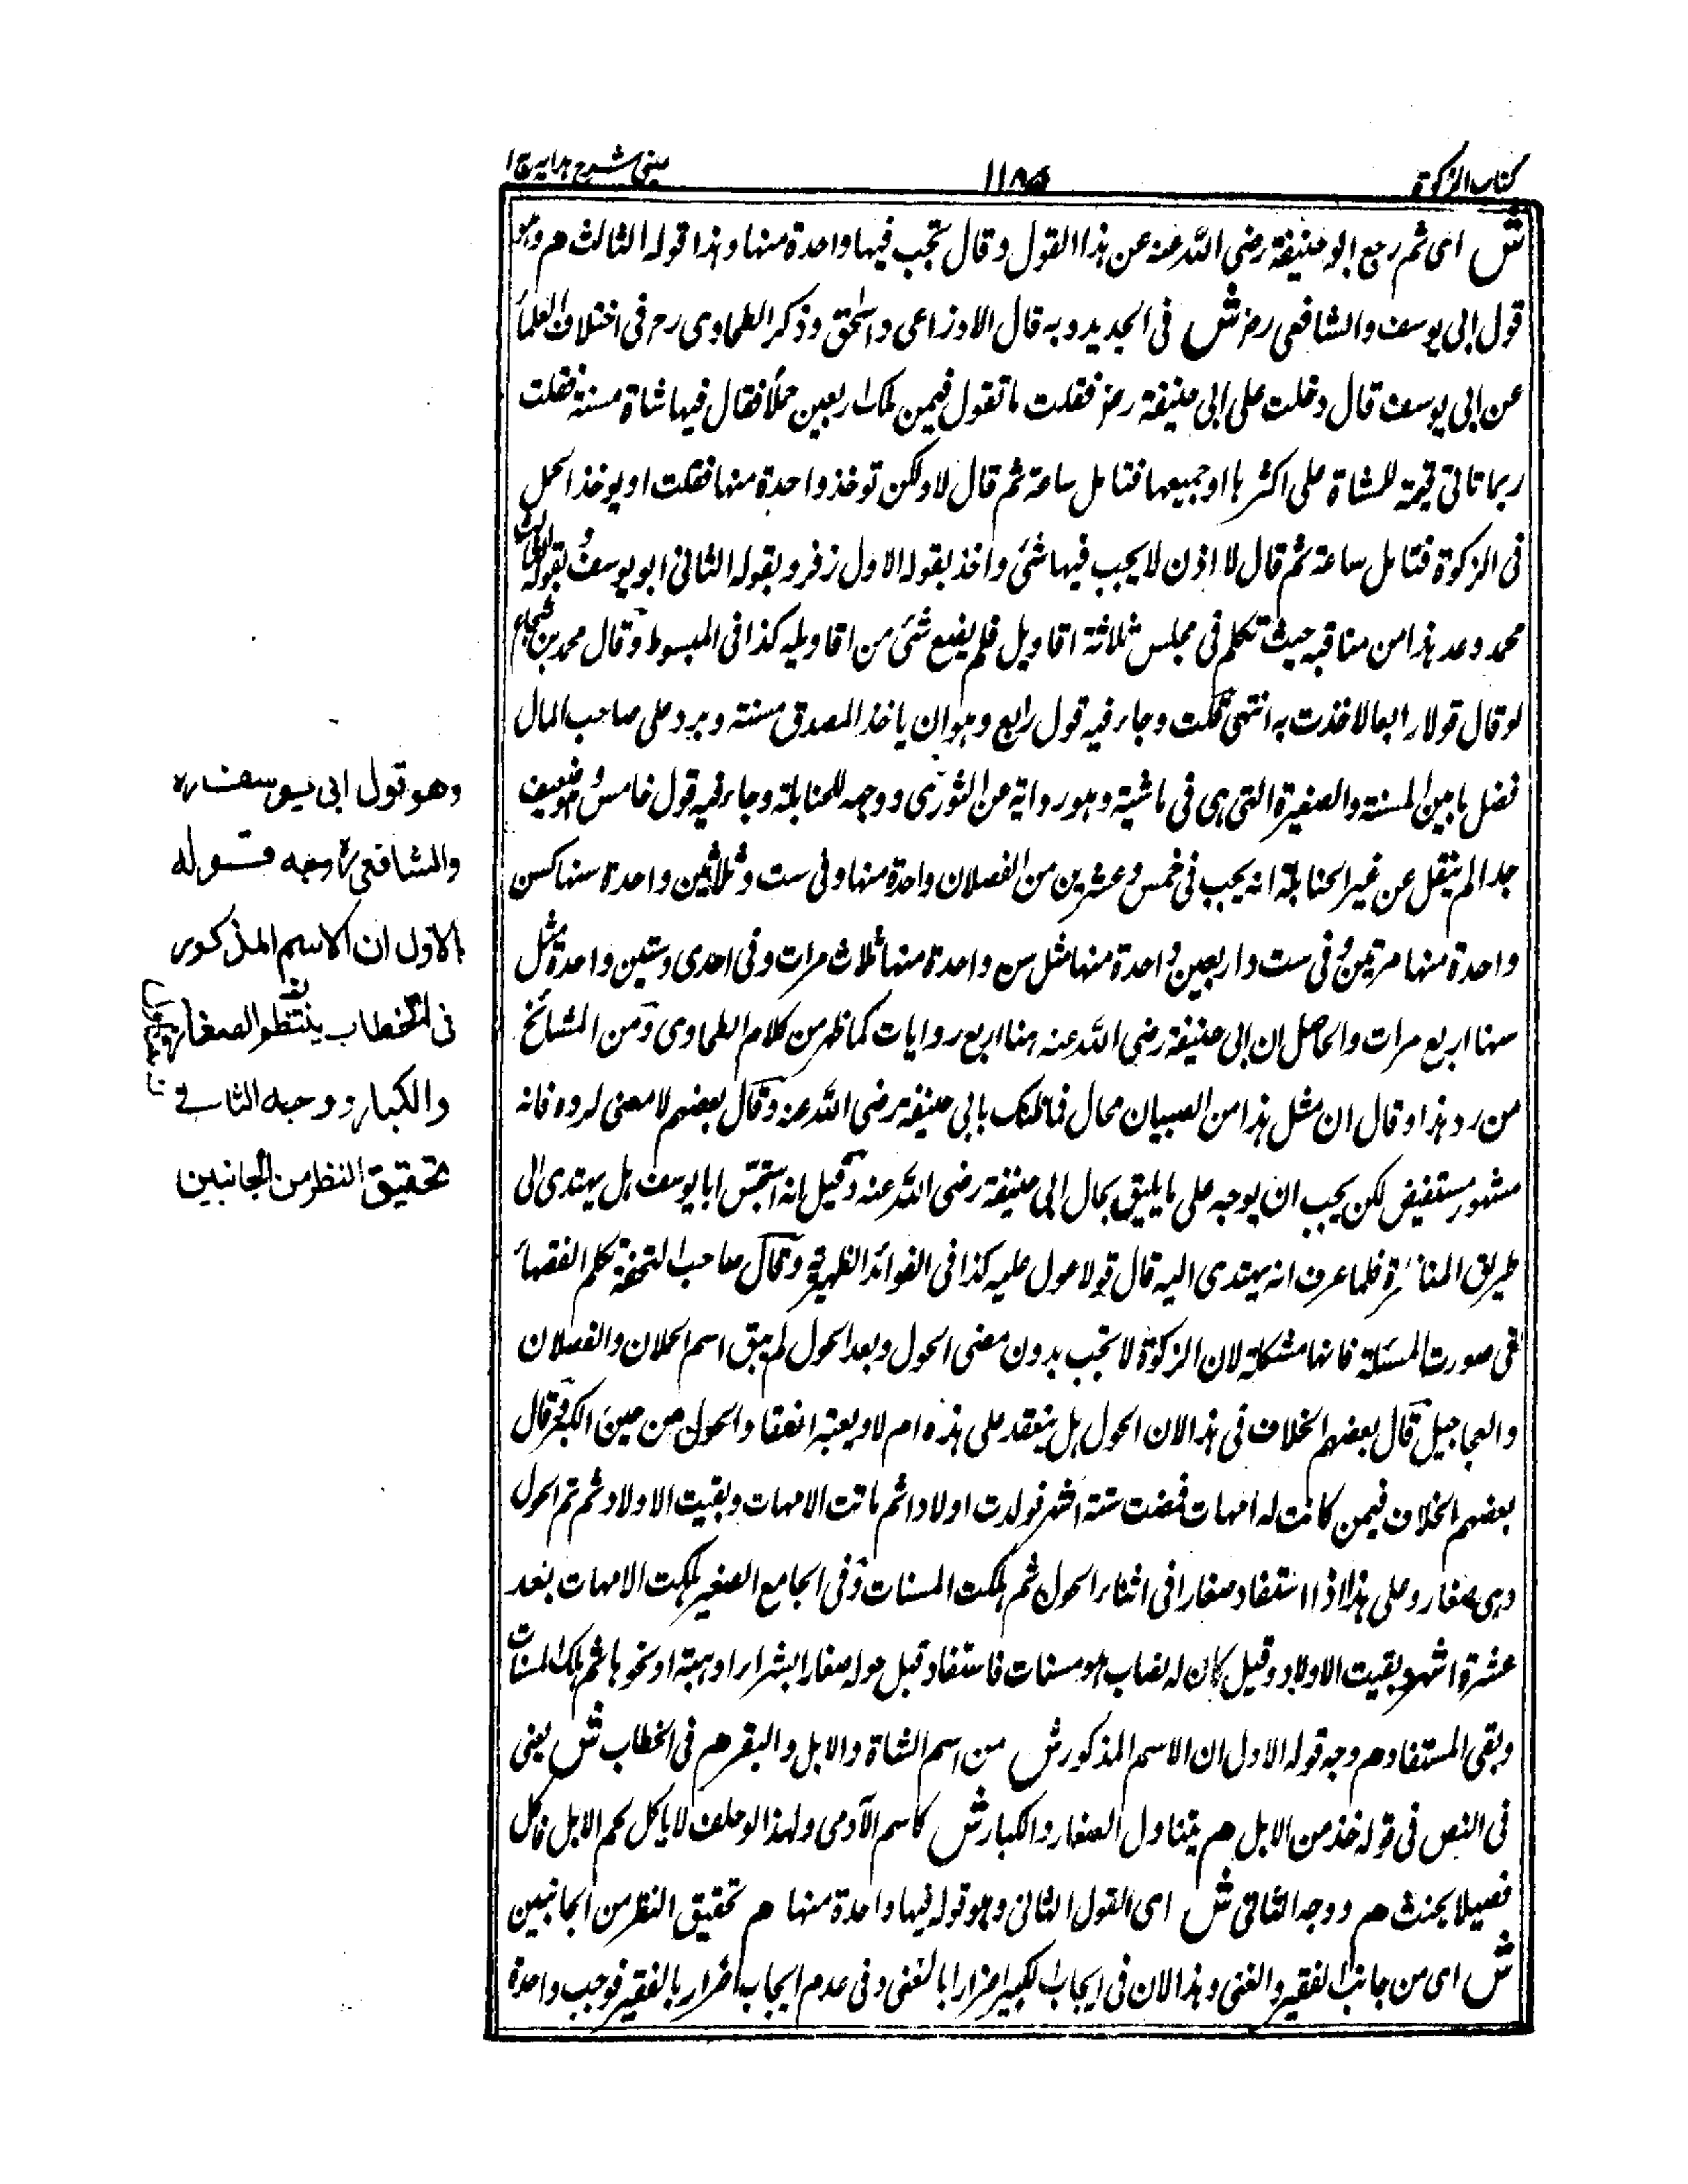 كتاب الزكوة
١١٨٥
عينى شرح هداية ج ١
ش اى ثم رجع ابو حنيفة رضى الله عنه عن هذا القول وقال تجب فيها واحدة منها وهذا قوله الثالث هم وهو
قول ابى يوسف والشافعى رضـ ش فى الجديد وبه قال الاوزاعى واسحٰق وذكر الطحاوى رح فى اختلاف العلماء
عن ابى يوسف قال دخلت على ابى حنيفة رضـ فقلت ما تقول فيمن ملك اربعين حملا فقال فيها شاة مسنة فقلت
ربما تاتى قيمة للشاة على اكثرها او جميعها فتامل ساعة ثم قال لا ولكن توخذ واحدة منها فقلت او يوخذ الحمل
فى الزكوة فتامل ساعة ثم قال لا اذن لا يجب فيها شئ واخذ بقوله الاول زفر وبقوله الثانى ابو يوسف وبقوله الثالث
محمد وعد هذا من مناقبه حيث تكلم فى مجلس ثلاثة اقاويل فلم يضع شئ من اقاويله كذا فى المبسوط وقال محمد بن شجاع
لو قال قولا رابعا لاخذت به انتهى قلت وجاء فيه قول رابع وهو ان ياخذ المصدق مسنة ويرد على صاحب المال
فضل ما بين المسنة والصغيرة التى هى فى ماشيته وهو رواية عن الثورى ووجه للحنابلة وجاء فيه قول خامس وهو ضعيف
جدا لم ينقل عن غير الحنابلة انه يجب فى خمس وعشرين من الفصلان واحدة منها وفى ست وثلاثين واحدة سنها كسن
واحدة منها مرتين وفى ست واربعين واحدة منها مثل سن واحدة منها ثلاث مرات وفى احدى وستين واحدة مثل
سنها اربع مرات والحاصل ان ابى حنيفة رضى الله عنه هنا اربع روايات كما ظهر من كلام الطحاوى ومن المشائخ
من رد هذا وقال ان مثل هذا من الصبيان محال فما ظنك بابى حنيفة رضى الله عنه وقال بعضهم لا معنى لرده فانه
مشهور مستفيض لكن يجب ان يوجه على ما يليق بحال ابى حنيفة رضى الله عنه وقيل انه امتحن ابا يوسف هل يهتدى الى
طريق المناظرة فلما عرف انه يهتدى اليه قال قولا عول عليه كذا فى الفوائد الظهيرية وقال صاحب التحفة تكلم الفقهاء
فى صورت المسئلة فانها مشكلة لان الزكوة لا تجب بدون مضى الحول وبعد الحول لم يبق اسم الحملان والفصلان
والعجاجيل قال بعضهم الخلاف فى هذا لان الحول هل ينعقد على هذه ام لا ويعتبر انعقاد الحول من حين الكبر وقال
بعضهم الخلاف فيمن كانت له امهات فمضت ستة اشهر فولدت اولادا ثم ماتت الامهات وبقيت الاولاد ثم تم الحول
وهى صغار وعلى هذا اذا استفاد صغارا فى اثناء الحول ثم هلكت المسنات وفى الجامع الصغير هلكت الامهات بعد
عشرة اشهر وبقيت الاولاد وقيل كان له نصاب هو مسنات فاستفاد قبل حوله صغارا بشراء او هبة او نحوها ثم هلك المسنات
وبقى المستفاد هم وجه قوله الاول ان الاسم المذكور ش من اسم الشاة والابل والبقر هم فى الخطاب ش يعنى
فى النص فى قوله خذ من الابل هم يتناول الصغار والكبار ش كاسم الآدمى ولهذا لو حلف لا ياكل لحم الابل فاكل
فصيلا يحنث هم ووجه الثانى ش اى القول الثانى وهو قوله فيها واحدة منها هم تحقيق النظر من الجانبين
ش اى من جانب الفقير والغنى وهذا لان فى ايجاب الكبير اضرارا بالغنى وفى عدم ايجاب اضرار بالفقير فوجب واحدة
وهو قول ابى يوسف رح
والشافعى رح وجه قوله
الاول ان الاسم المذكور
فى الخطاب ينتظم الصغار
والكبار ووجه الثانى
تحقيق النظر من الجانبين